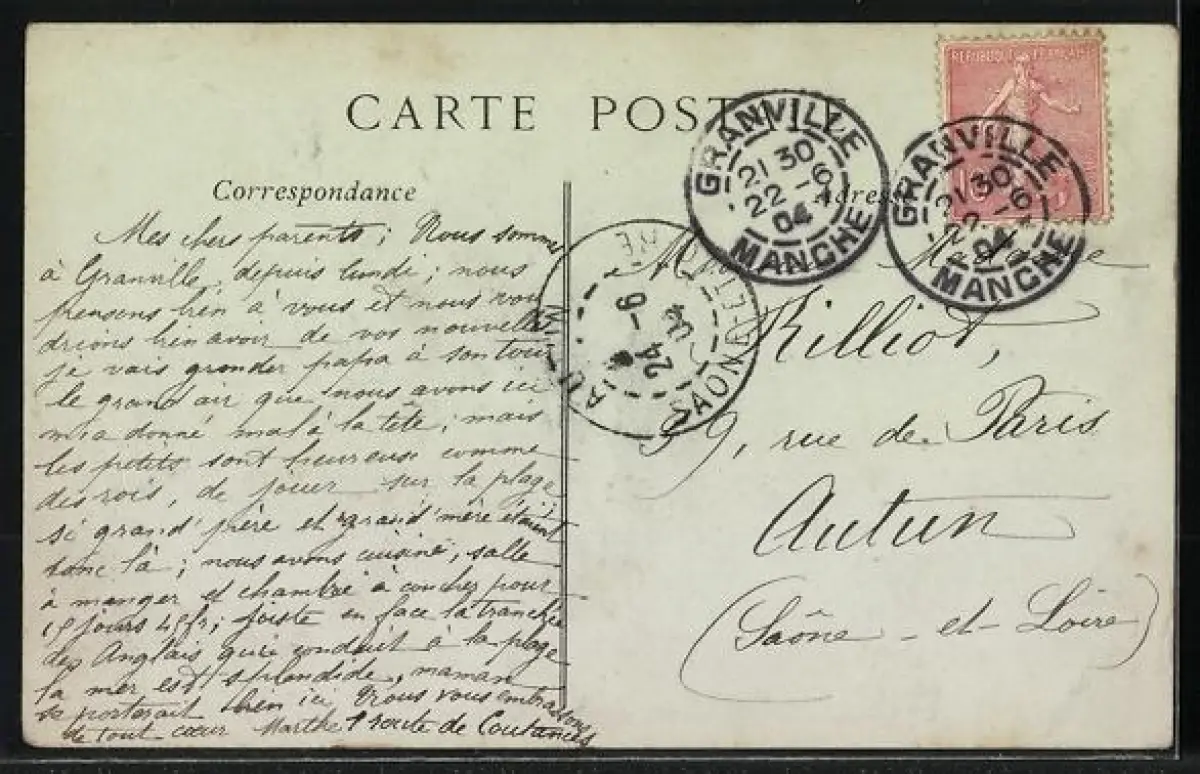 CARTE POSTALE
Correspondance
Mes chers parents; Nous sommes
à Granville, depuis lundi; nous
pensons bien à vous et nous vou
drions bien avoir de vos nouvelles
je vais gronder papa à son tour
le grand air que nous avons ici
m'a donné mal à la tête; mais
les petits sont heureuse comme
des rois, de jouer sur la plage
si grand'père et grand'mère étaient
donc là; nous avons cuisine, salle
à manger et chambre à coucher pour
15 jours 45fr; juste en face la tranchée
des Anglais qui conduit à la plage
la mer est splendide, maman
se porterait bien ici Nous vous embrassons
de tout cœur Marthe 1 route de Coutances
REPUBLIQUE FRANÇAISE
10
GRANVILLE
21 30
22 -6
04
MANCHE
GRANVILLE
21 30
22 -6
04
MANCHE
24 -6
04
SAONE-ET-
Adresse
Madame
Rilliot,
39, rue de Paris
Autun
(Saône-et-Loire)